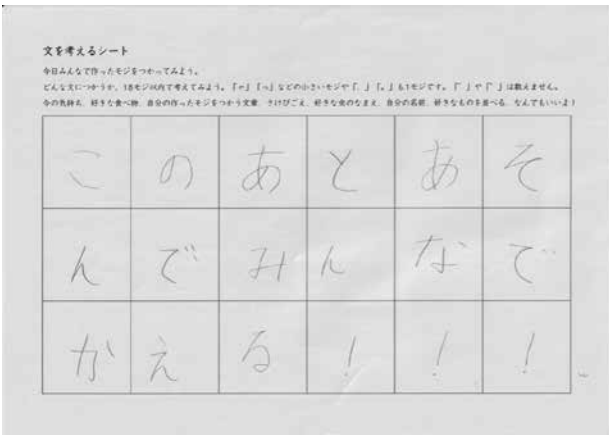 文を考えるシート
今日みんなで作ったモジをつかってみよう。
どんな文につかうか、18モジ以内で考えてみよう。「ゃ」「っ」などの小さいモジや「、」「。」も1モジです。「゛」や「゜」は数えません。
今の気持ち、好きな食べ物、自分の作ったモジをつかう文章、さけびごえ、好きな虫のなまえ、自分の名前、好きなものを並べる、なんでもいいよ！
このあとあそ
んでみんなで
かえる！！！